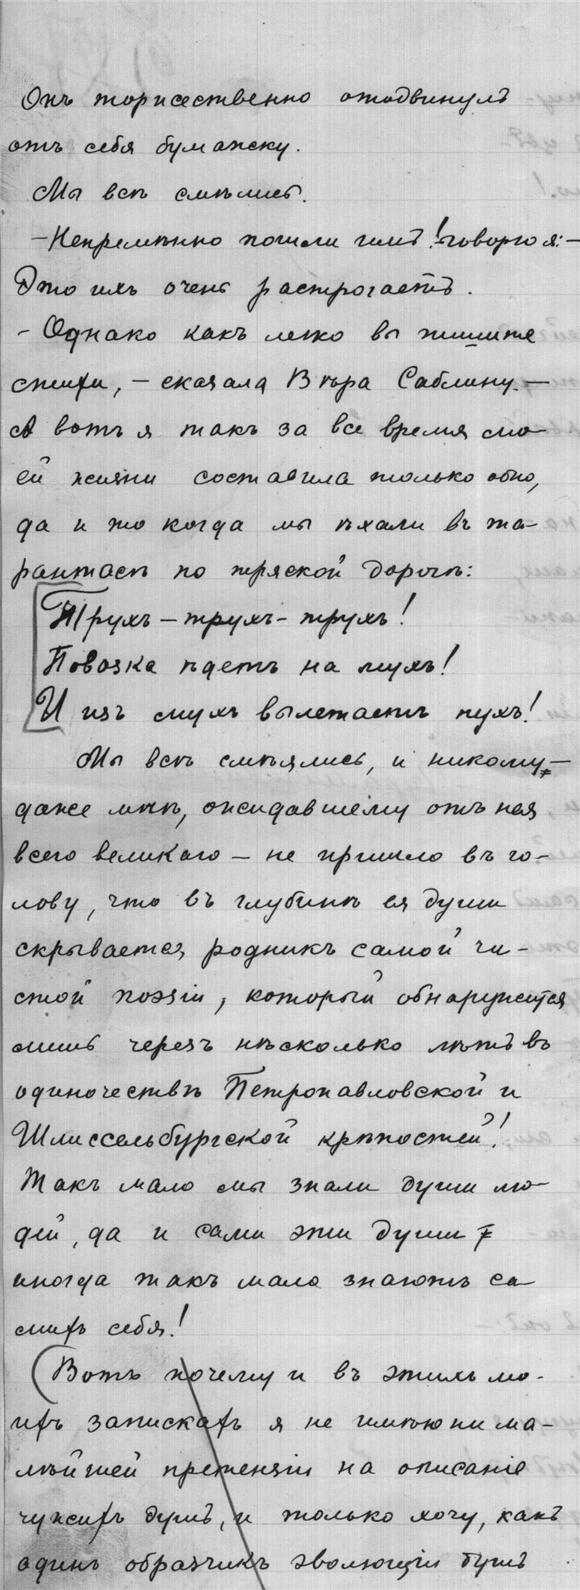 Онъ торжественно отодвинулъ
отъ себя бумажку.
Мы всѣ смѣялись.
— Непремѣнно пошли имъ! говорю я: —
Это ихъ очень растрогаетъ.
— Однако какъ легко вы пишите
стихи, — сказала Вѣра Саблину. —
А вотъ я такъ за все время мо-
ей жизни составила только одно,
да и то когда мы ѣхали въ та-
рантасѣ по тряской дорогѣ:
Трухъ — трухъ — трухъ!
Повозка ѣдетъ на мухъ!
И изъ мухъ вылетаетъ пухъ!
Мы всѣ смѣялись, и никому —
даже мнѣ, ожидавшему отъ нея
всего великаго — не пришло въ го-
лову, что въ глубинѣ ея души
скрывается родникъ самой чи-
стой поэзіи, который обнаружится
лишь черезъ нѣсколько лѣтъ въ
одиночествѣ Петропавловской и
Шлиссельбургской крѣпостей!
Такъ мало мы знали души лю-
дей, да и сами эти души
иногда такъ мало знаютъ са-
михъ себя!
(Вотъ почему и въ этихъ мо-
ихъ запискахъ я не имѣю ни ма-
лѣйшей претензіи на описаніе
чужихъ душъ, и только хочу, какъ
одинъ образчикъ эволюціи душъ